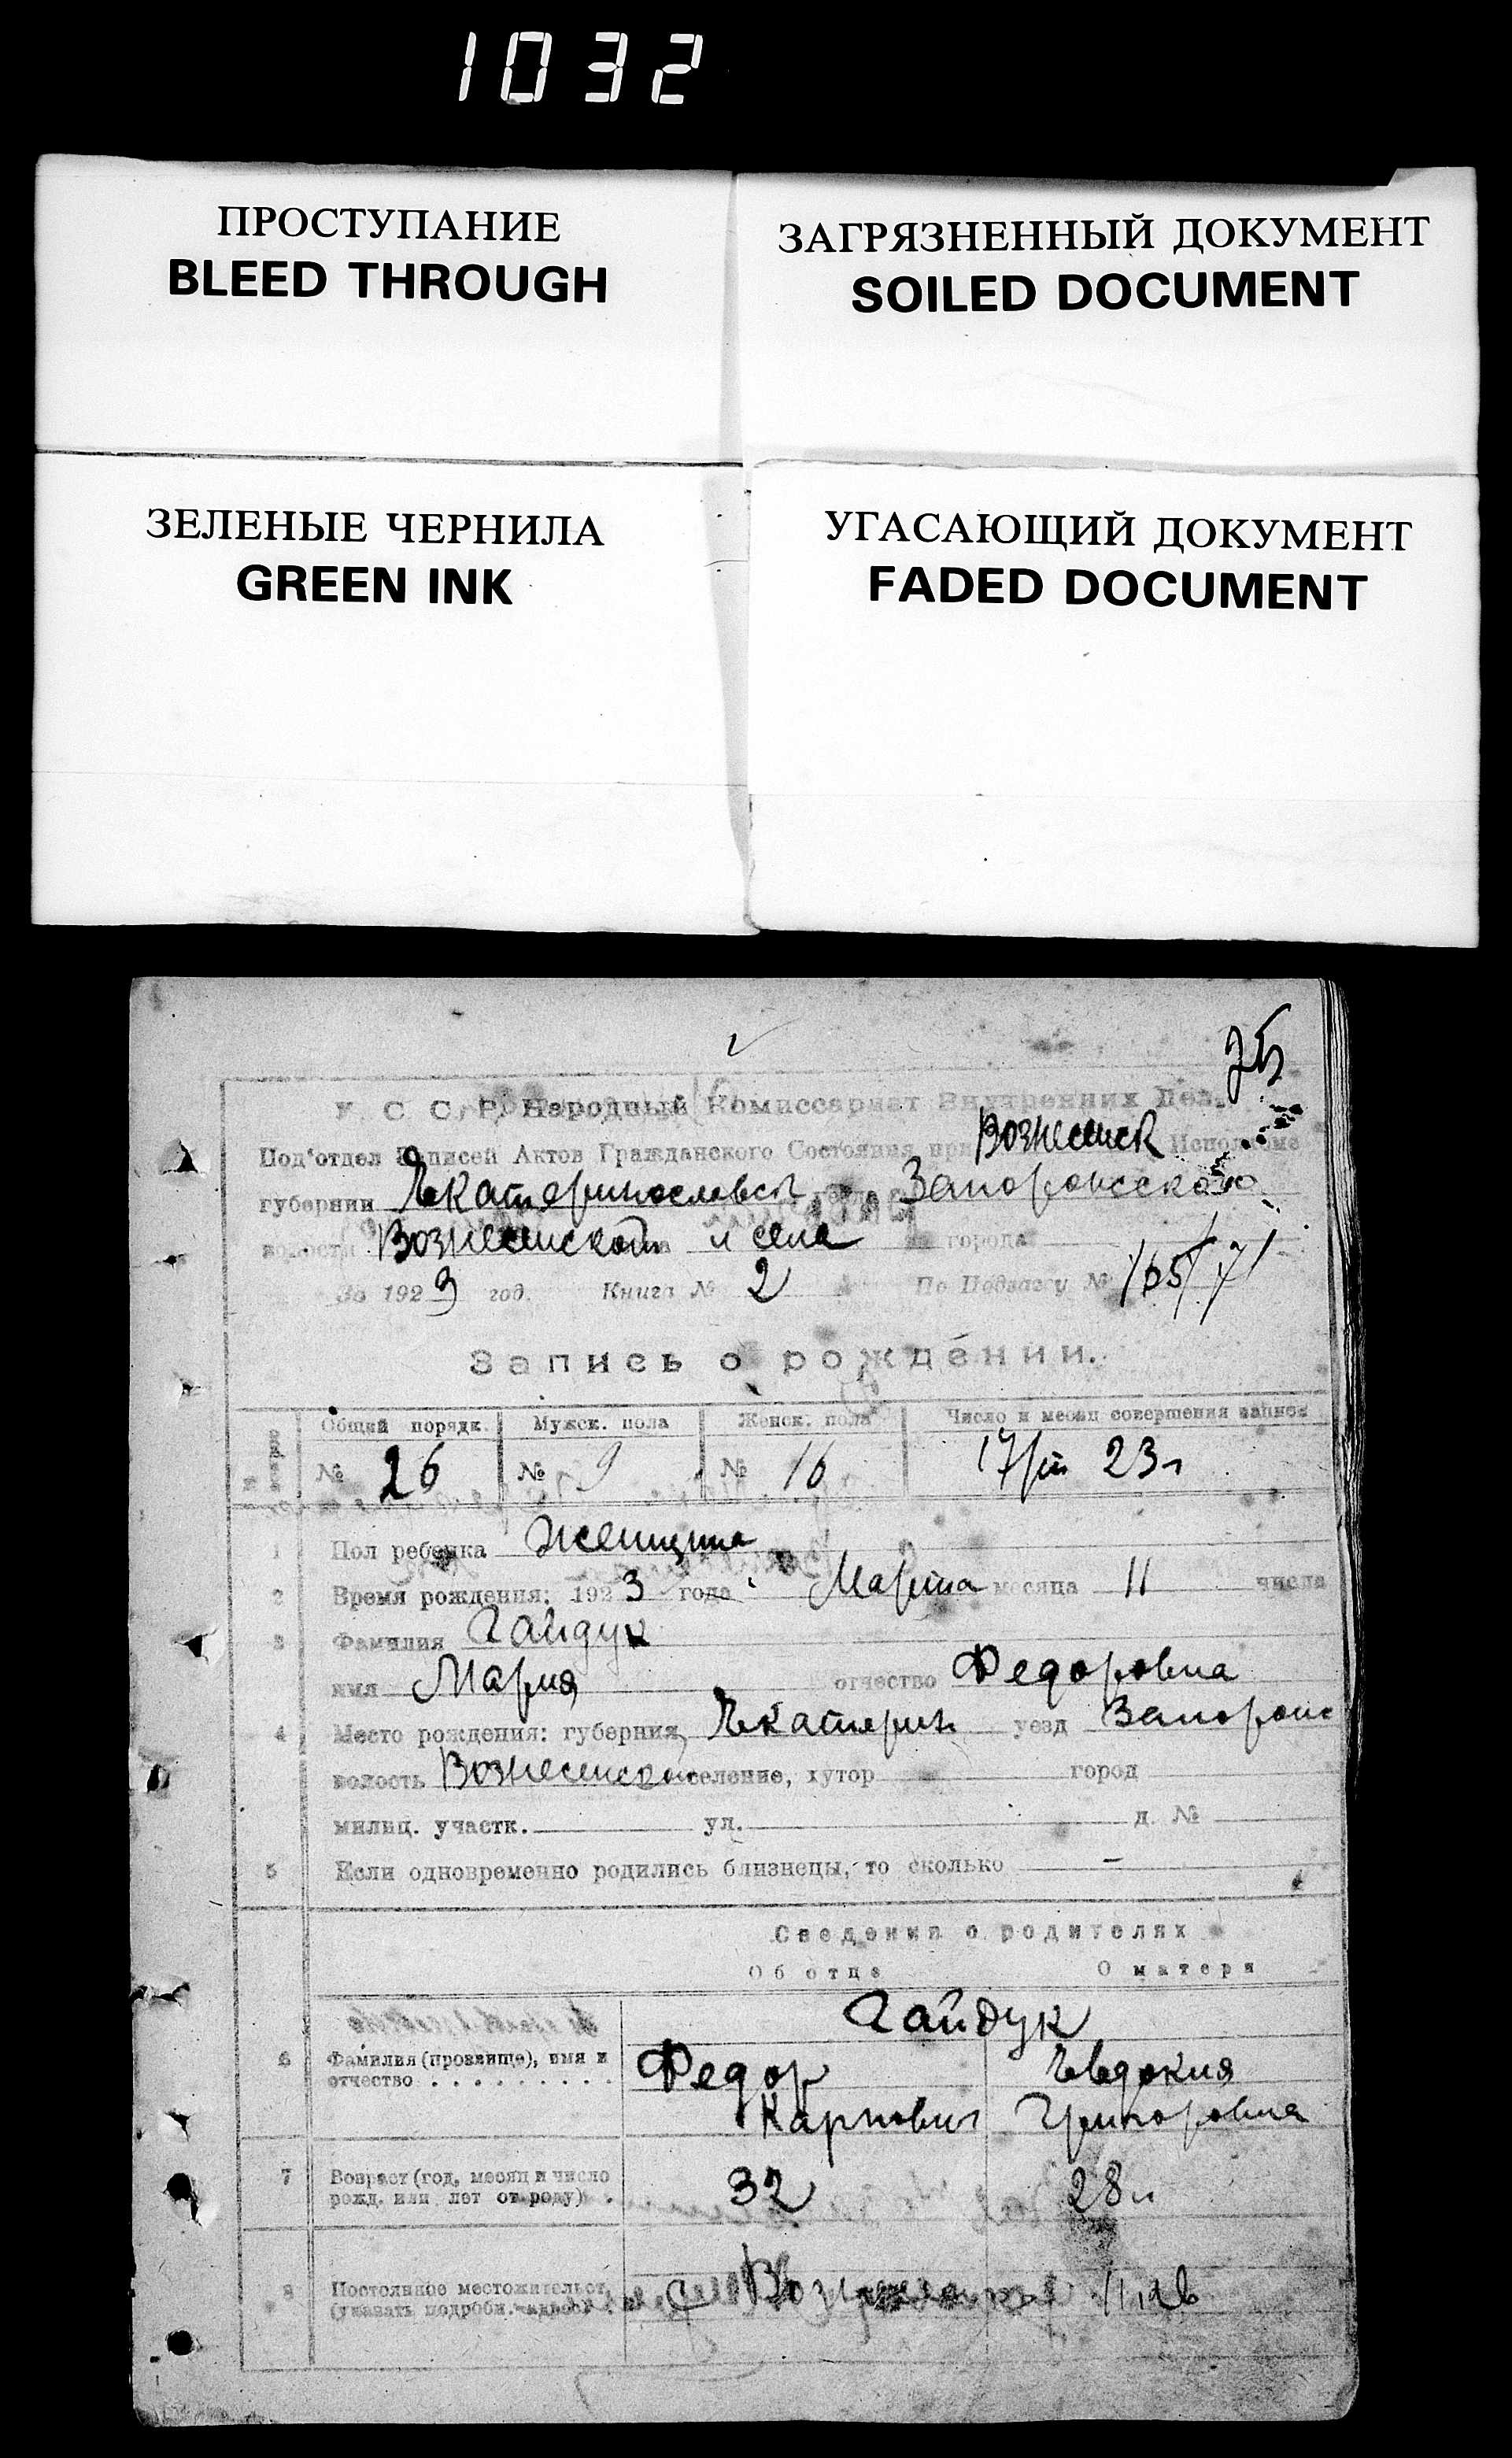 1032
ПРОСТУПАНИЕ
BLEED THROUGH
ЗАГРЯЗНЕННЫЙ ДОКУМЕНТ
SOILED DOCUMENT
ЗЕЛЕНЫЕ ЧЕРНИЛА
GREEN INK
УГАСАЮЩИЙ ДОКУМЕНТ
FADED DOCUMENT
У. С. С. Р. Народный Комиссариат Внутренних Дел.
Под'отдел Записей Актов Гражданского Состояния при Вознесенск Исполкоме
губернии Екатеринославск
волости Вознесенской и села города
За 1923 год. Книга № 2 По №
Запись о рождении.
Общий порядк. Мужск. пола Женск. пола Число и месяц совершения записи
№ 26 № 9 № 16 17/ 23г
1 Пол ребенка Женщина
2 Время рождения: 1923 года Марта месяца 11 числа
3 Фамилия Гайдук
имя Мария отчество Федоровна
4 Место рождения: губерния Екатерин уезд Запорож
волость Вознесенск селение, хутор город
милиц. участк. ул. д. №
5 Если одновременно родились близнецы, то сколько —
Сведения о родителях
Об отце О матери
Гайдук
6 Фамилия (прозвище), имя и Федор Евдокия
отчество . . . . . . . . . Карпович Григоровна
7 Возраст (год, месяц и число 32 28
рожд. или лет от роду) .
8 Постоянное местожительст.
(указать подробн. адрес) .